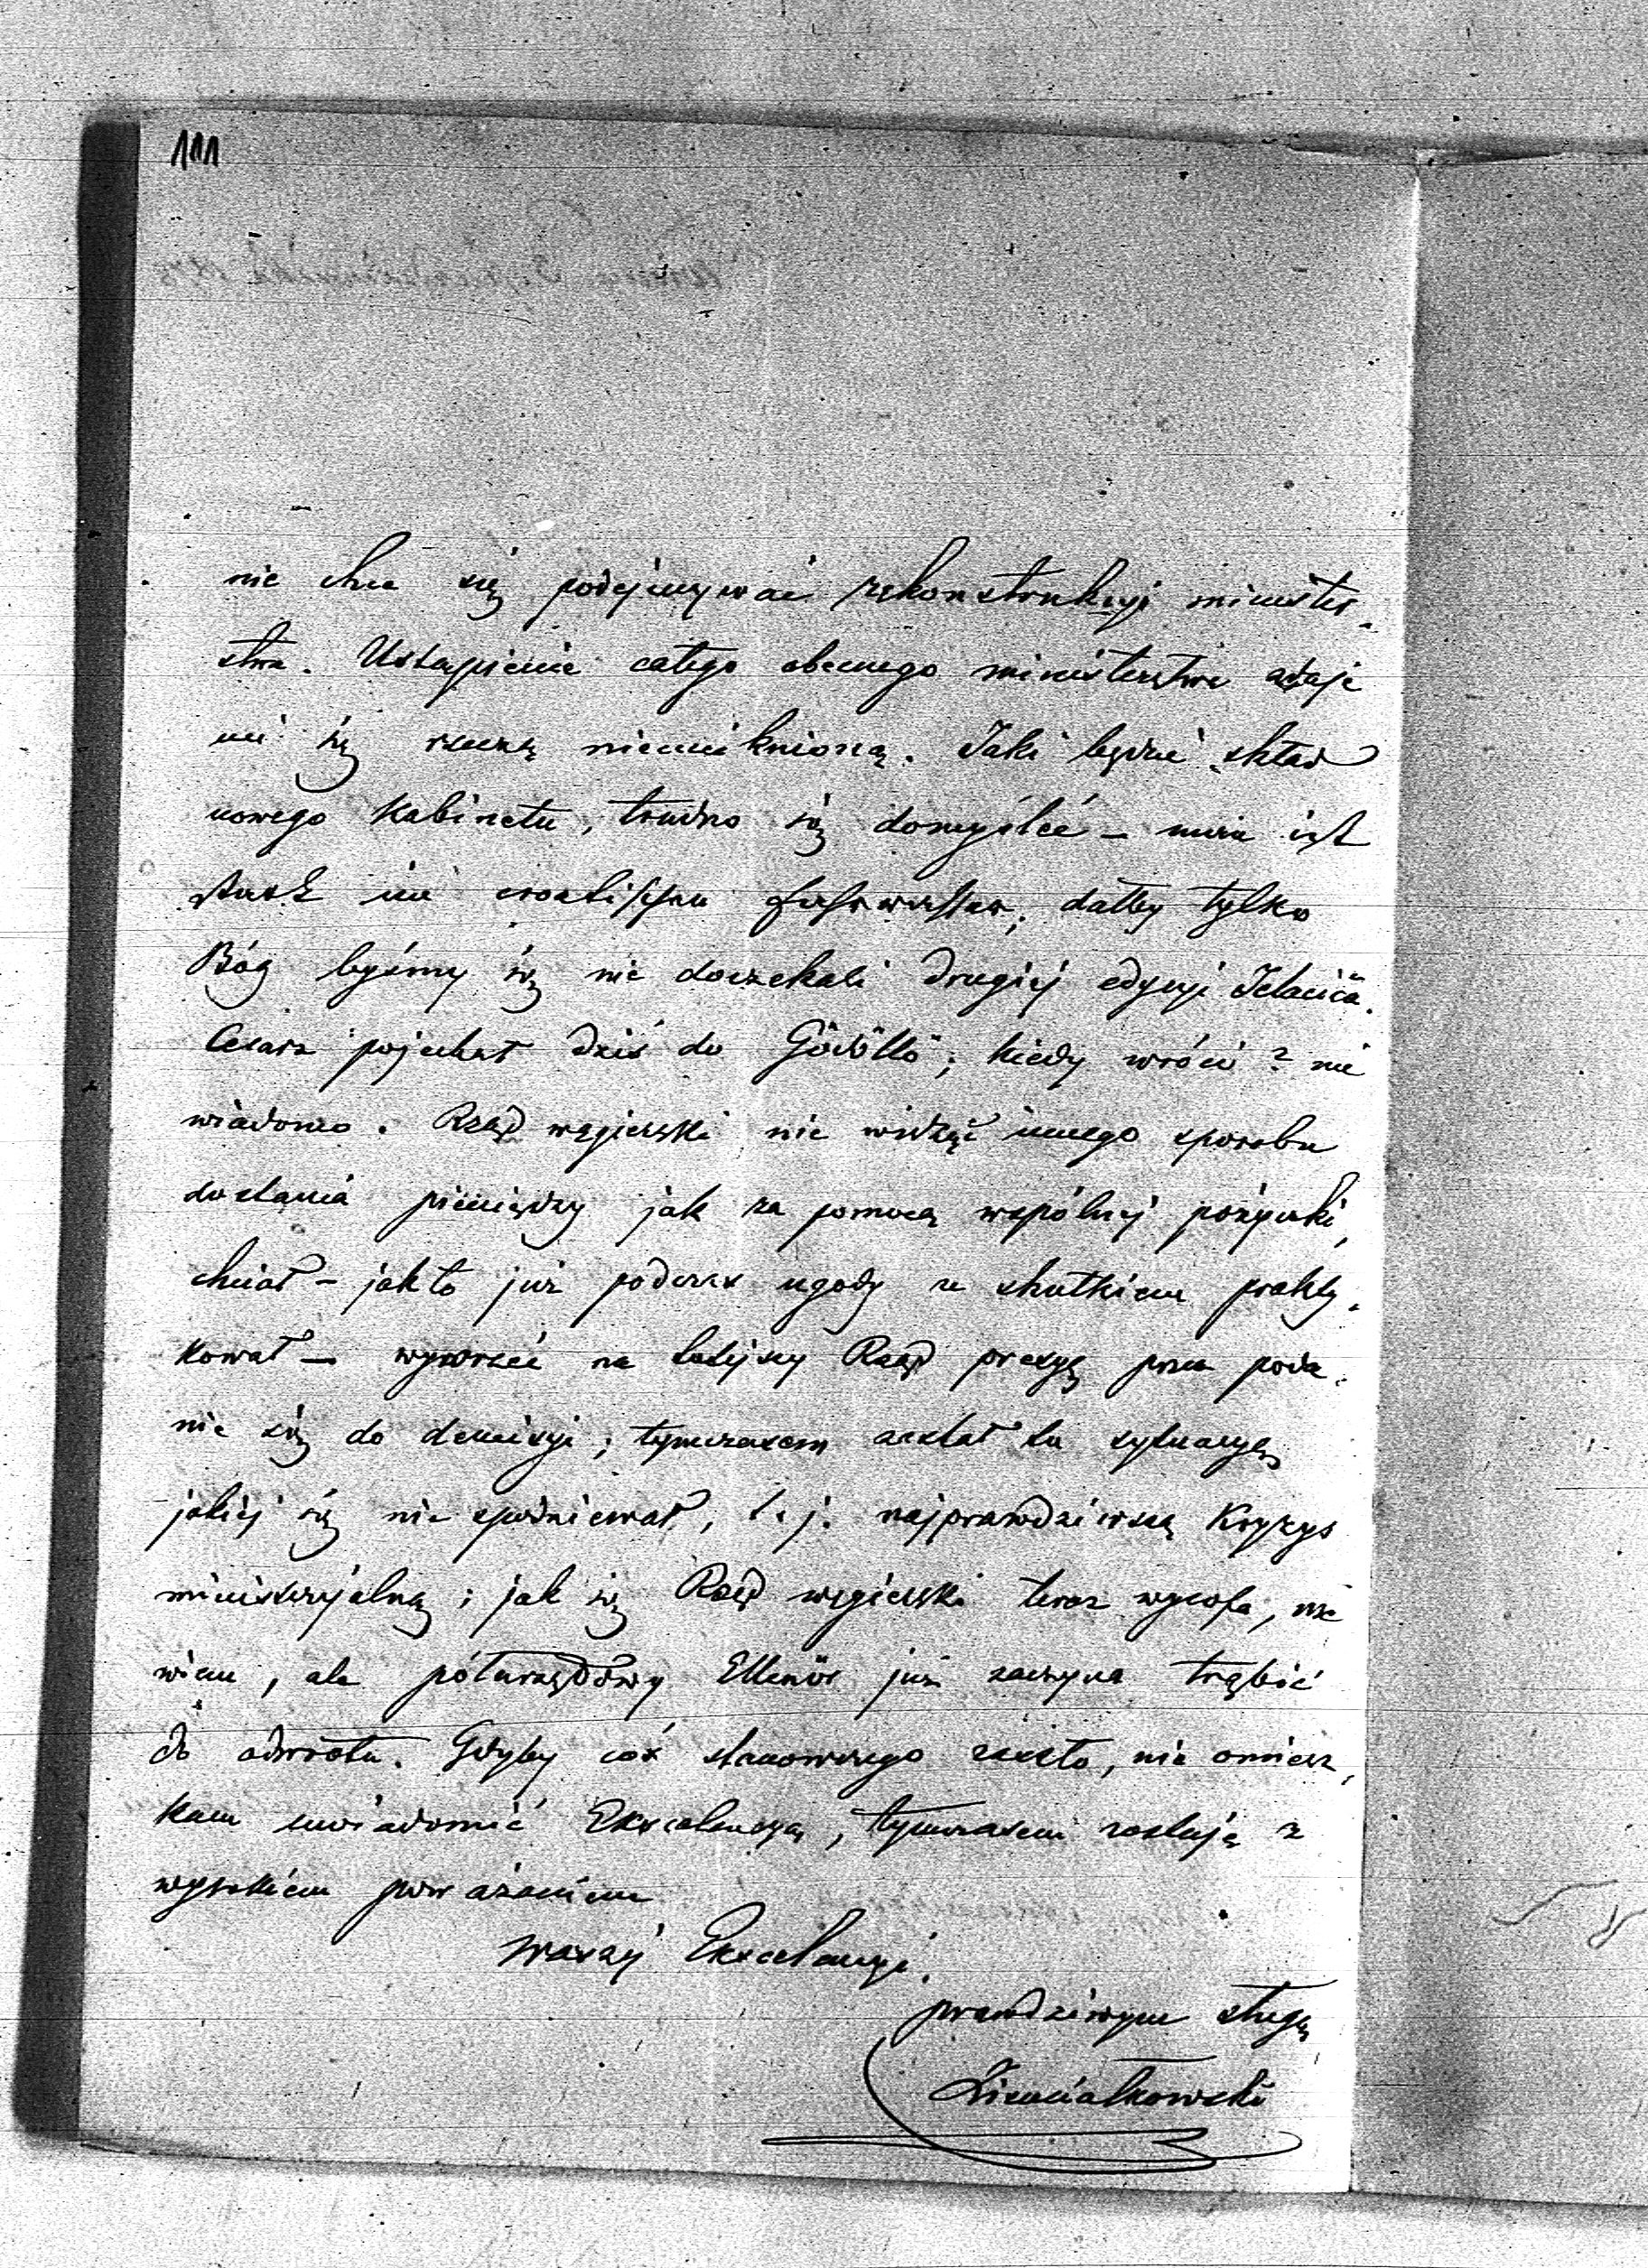 111
nie chce się podejmywać rekonstrukcyi minister-
stwa. Ustąpienie całego obecnego ministerstwa zdaje
mi się rzeczą nieuniknioną. Jaki będzie skład
nowego kabinetu, trudno się domyśleć –
dałby tylko
Bóg byśmy się nie doczekali drugiej edycyi Jelačiča.
Cesarz pojechał dziś do Gödöllö; kiedy wróci? nie
wiadomo. Rząd węgierski nie widząc innego sposobu
dostania pieniędzy jak za pomocą wspólnej pożyczki,
chciał – jak to już podczas ugody ze skutkiem prakty-
kował – wywrzeć na tutejszy Rząd presyę przez poda-
nie się do demisyi; tymczasem zastał tu sytuacyę
jakiej się nie spodziewał, t. j. najprawdziwszą Kryzys
ministeryjalną; jak się Rząd węgierski teraz wycofa, nie
wiem, ale półurzędowy Ellenör już zaczyna trąbić
do odwrotu. Gdyby coś stanowczego zaszło, nie omiesz-
kam uwiadomić Ekscelencyą, tymczasem zostaję z
wysokiem poważaniem
Waszej Ekscelencyi
prawdziwym sługą
Ziemiałkowski